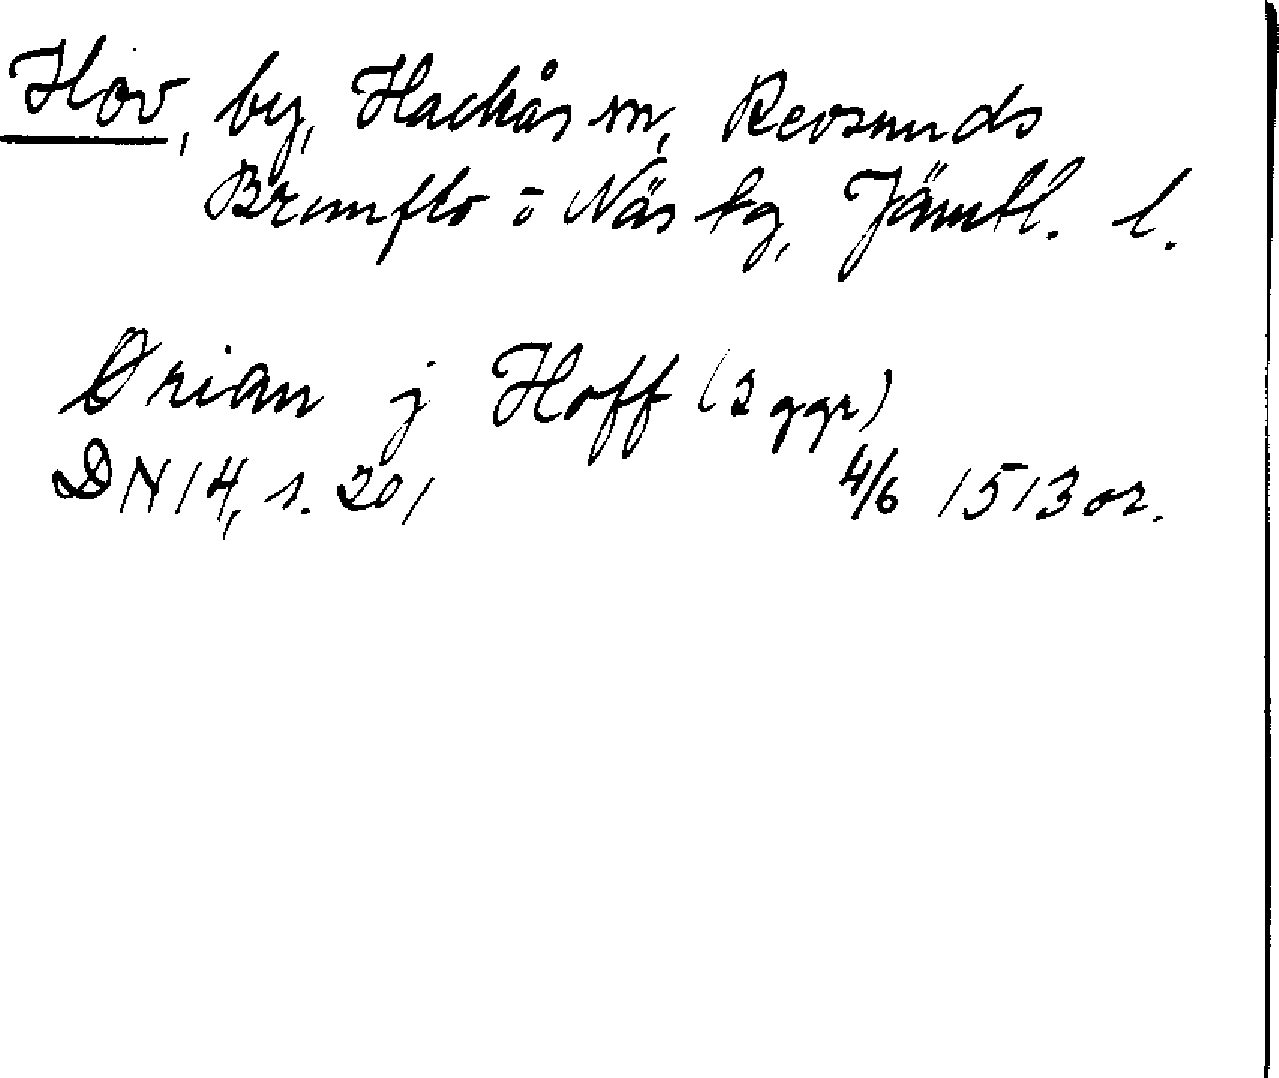 Hov, by, Hackås sn, Revsunds
Brunflo o Näs tg, Jämtl. l.
Ørian j Hoff (2 ggr)
DN 14, s. 201 4/6 1513 or.